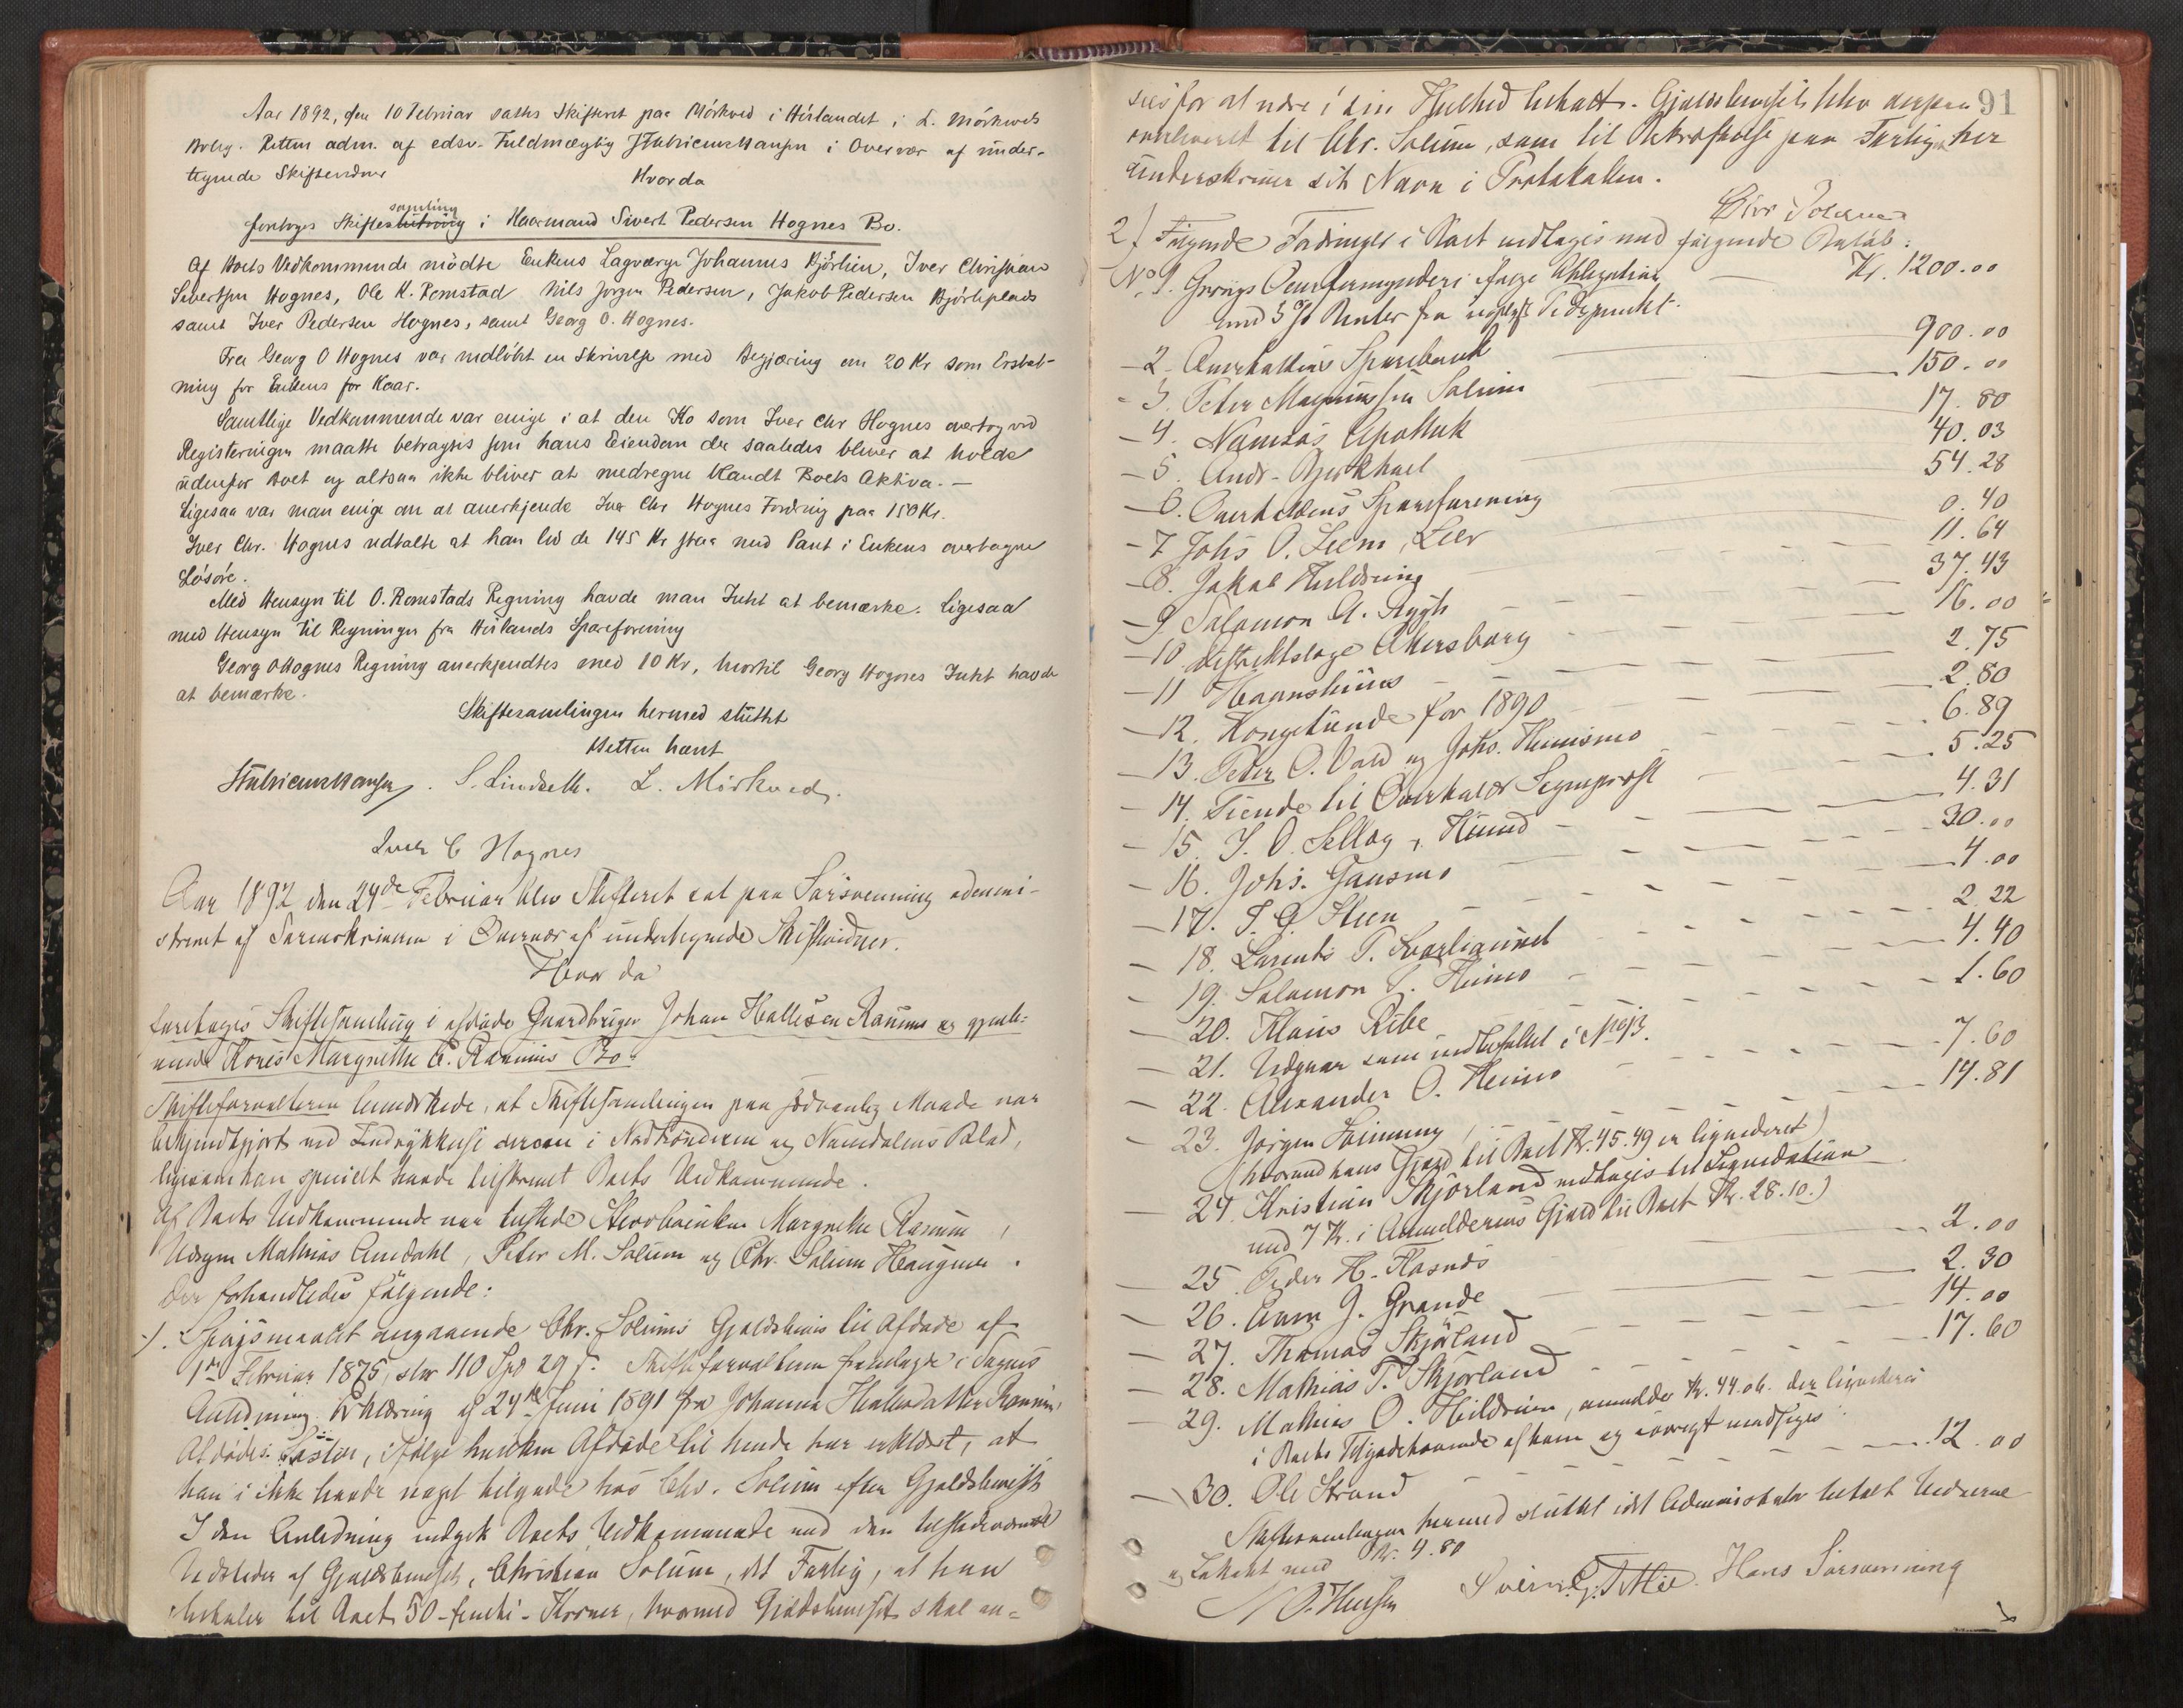 Aar 1892, den 10 Februar sattes Skifteret paa Mörkved i Höilandet i L. Mörkveds
Bolig. Retten adm. af edsv. Fuldmægtig i Overvær af under-
tegnede Skiftevidner
Hvorda
samling
foretoges Skifteslutning i Kaarmand Sivert Pedersen Hognes Bo.
Af Boets Vedkommende mödte Enkens Lagværge Johannes Björlien, Iver Christian
Sivertsen Hognes, Ole K. Romstad Nils Jørgen Pedersen, Jakob Pedersen Björlieplads
samt Iver Pedersen Hognes, samt Georg O. Hognes.
Fra Georg O Hognes var indløbt en Skrivelse med Begjæring om 20 Kr som Erstat-
ning for Enkens for Kaar.
Samtlige Vedkommende var enige i at den Ko som Iver Chr Hognes overtog ved
Registeringen maatte betragtes som hans Eiendom der saaledes bliver at holde
udenfor Boet og altsaa ikke bliver at medregne blandt Boets Aktiva. —
Ligesaa var man enige om at anerkjende Iver Chr Hognes Fordring paa 150 Kr.
Iver Chr. Hognes udtalte at han lod de 145 Kr staa med Pant i Enkens overtagne
Løsøre.
Med Hensyn til O. Romstads Regning havde man Intet at bemærke. Ligesaa
med Hensyn til Regningen fra Höilands Spareforening
Georg O Hognes Regning anerkjendtes med 10 Kr, hvortil Georg Hognes Intet havde
at bemærke.
Skiftesamlingen hermed sluttet
Retten hævt
S. Lindseth. L. Mörkved.
Iver C Hognes
Aar 1892 den 24de Februar blev Skifteret sat paa Sörsvenning admini-
streret af Sorenskriveren i Overvær af undertegnede Skiftevidner.
Hvor da
foretoges Skiftesamling i afdøde Gaardbruger Johan Hallesen Ranums og gjenle-
vende Kones Margrethe C. Ranums Bo.
Skifteforvalteren bemærkede, at Skiftesamlingen paa sædvanlig Maade var
bekjendtgjort ved Indrykkelse derom i Nordtrönderen og Namdalens Blad,
ligesom han specielt havde tilskrevet Boets Vedkommende.
Af Boets Vedkommende var tilstede Stervboenken Margrethe Ranum,
Mathias Amdahl, Peter M. Solum og Chr. Solum Haugum.
Der forhandledes følgende:
1). Spørgsmaalet angaaende Chr. Solums Gjældsbevis til Afdøde af
1ste Februar 1875, stor 110 Spd 29 s. Skifteforvalteren fremlagde i Sagens
Anledning Erklæring af 24de Juni 1891 fra Johanna Hallesdatter Ranum,
Afdødes Søster, ifølge hvilken Afdøde til hende har erklæret, at
han i ikke havde noget tilgode hos Chr. Solum efter Gjældsbeviset
I den Anledning indgik Boets Vedkommende med den tilstedeværende
Udsteder af Gjældsbeviset, Christian Solum, det Forlig, at han
betaler til Boet 50 – femti – Kroner, hvormed Gjældsbeviset skal an-
91
sees for at være i sin Helhed betalt. Gjældsbeviset blev derpaa
overleveret til Chr. Solum, som til Bekræftelse paa Forliget her
underskriver sit Navn i Protokollen.
Chr Solum
2) Følgende Fordringer i Boet vedtoges med følgende Beløb:
No 1. Grongs Overformynderi ifølge Obligation — Kr. 1200.00
med 5 % Renter fra Tidspunkt.
— 2. Overhallens Sparebank — 900.00
— 3. Peter Magnussen Solum — 150.00
— 4. Namsos Apothek — 17.80
— 5. Andr. Bjerkhael — 40.03
— 6. Overhaldens Spareforening — 54.28
— 7 Johs O. Leem, Lier 0.40
— 8. Jakob Huldring — 11.64
— 9. Salomon A. Rygh — 37.43
— 10 Distriktslæge Akersborg — 16.00
— 11 — 2.75
— 12. Kongetiende for 1890 — 2.80
— 13. Peter O. Vold og Johs. Himsmo — 6.89
— 14. Tiende til Overhalds Sogneprest — 5.25
— 15. J. O. Sellæg, — 4.31
— 16. Johs. Gansmo — 30.00
— 17. T. G. Steen — 4.00
— 18. Laurits P. — 2.22
— 19. Salomon P. Himo — 4.40
— 20. Klaus Ribe — 1.60
— 21. Udgaar som indbefattet i No 13.
— 22. Alexander O. Heimo — 7.60
— 23. Jörgen — 14.81
(hvorved hans Gjæld til Boet Kr. 45.49 er ligvideret)
— 24. Kristian Skjörland vedtoges til Liqvidation
med 7 Kr. i Anmelderens Gjæld til Boet Kr. 28.10.)
— 25. Peder H. Flasnes — 2.00
— 26. J. Grande — 2.30
— 27. Thomas Skjörland — 14.00
— 28. Mathias T. Skjörland — 17.60
— 29. Mathias O. Hildrum, anmeldte Kr. 44.06. der ligvideres
i Boets Tilgodehavende af ham og iøvrigt modsiges.
— 30. Ole Strand — 12.00
Skiftesamlingen hermed sluttet idet Administrator betalt Vidnerne
og Lokalet med Kr. 4.80
Hans Sörsvenning